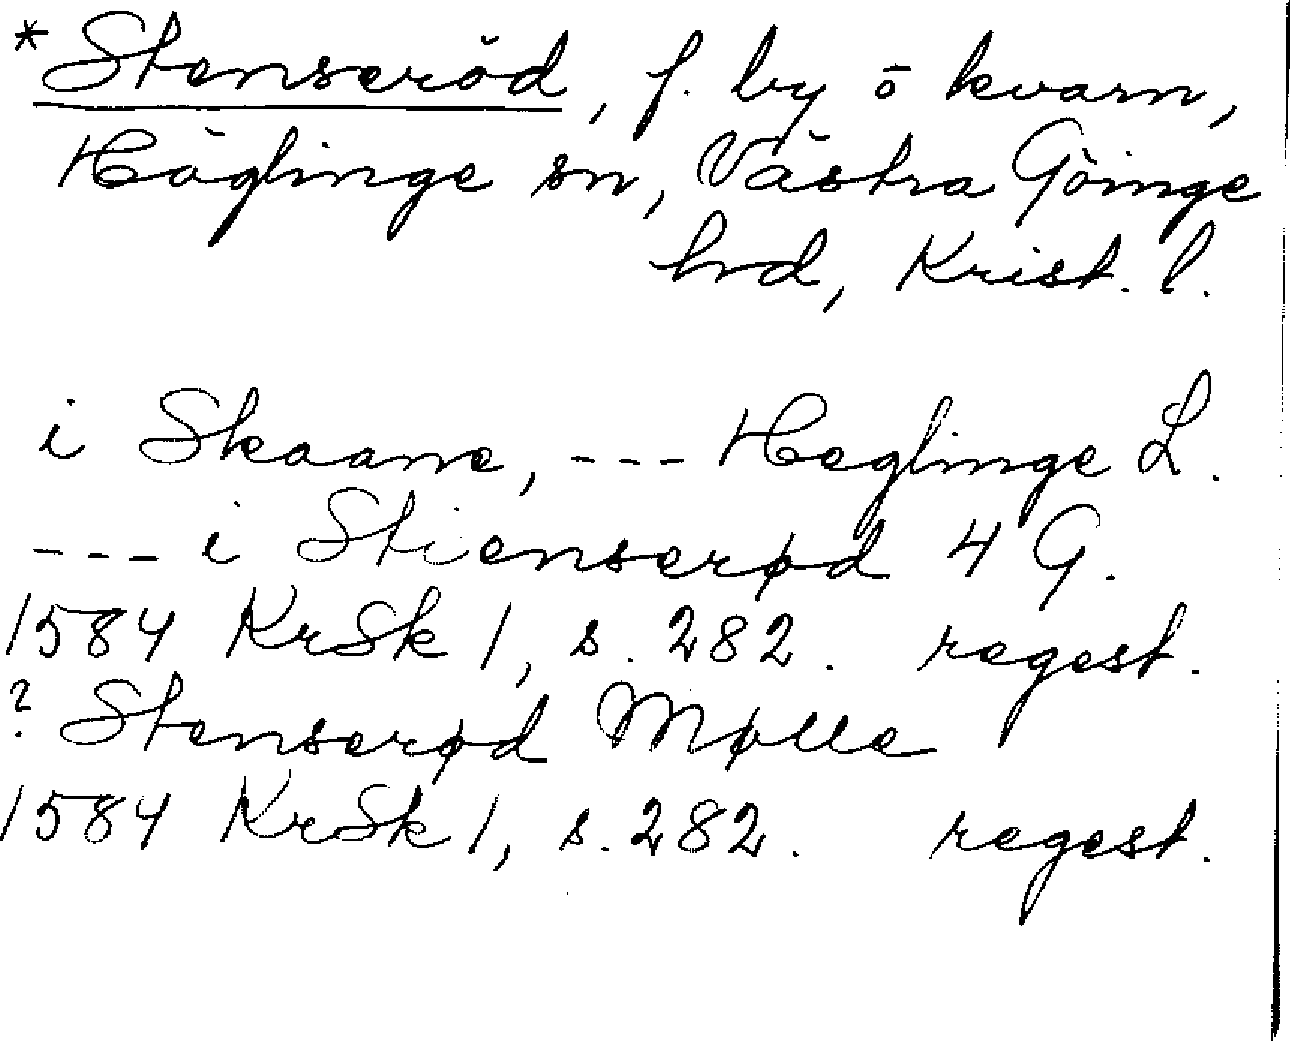 *Stenseröd, f. by o kvarn,
Häglinge sn, Västra Göinge
hrd, Krist. l.
i Skaane, --- Heglinge L.
--- i Stienserød 4 G.
1584 KrSk 1, s. 282. regest.
? Stenserød Mølle
1584 KrSk 1, s. 282. regest.